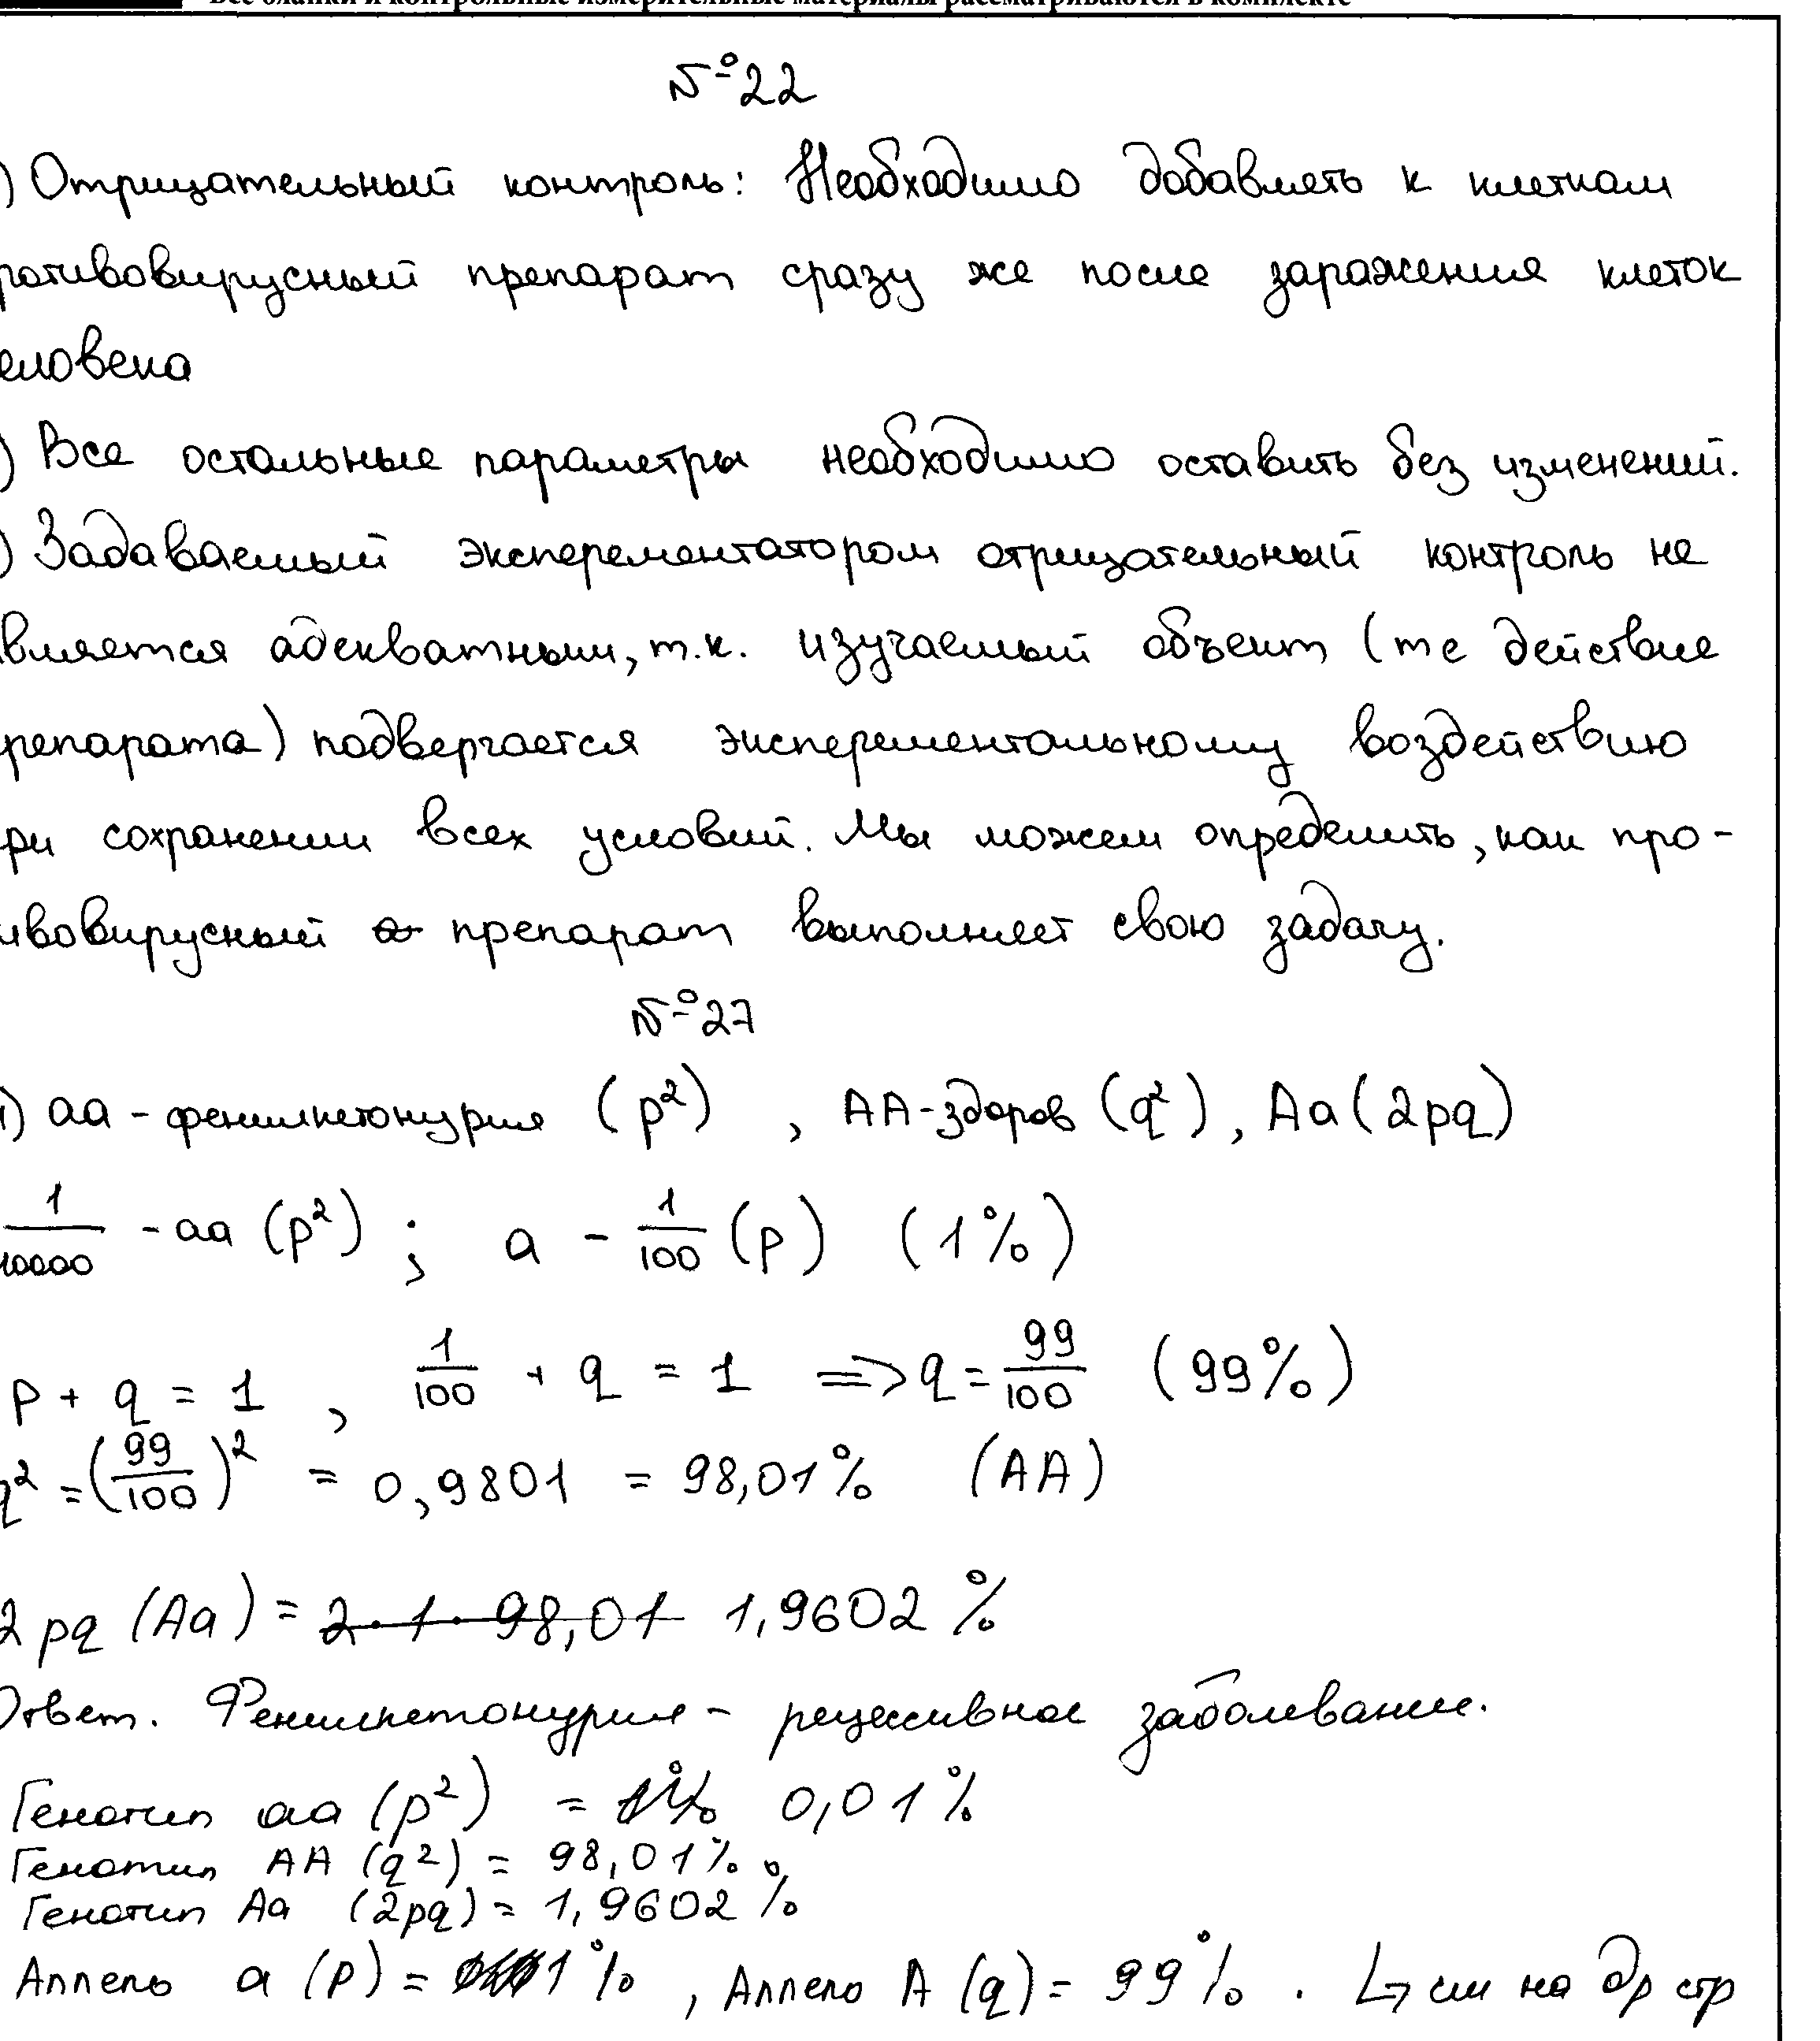 Все бланки и контрольные измерительные материалы рассматриваются в комплекте
№22
) Отрицательный контроль: Необходимо добавлять к клеткам
ротивовирусный препарат сразу же после заражения клеток
еловека
) Все остальные параметры необходимо оставить без изменений.
) Задаваемый эксперементатором отрицательный контроль не
вляется адекватным, т.к. изучаемый объект (те действие
репарата) подвергается эксперементальному воздействию
ри сохранении всех условий. Мы можем определить, как про-
ивовирусный препарат выполняет свою задачу.
№27
1) аа - фенилкетонурия (p²) , АА-здоров (q²), Аа (2pq)
1/10000 - аа (p²) ; а - 1/100 (p) (1%)
p + q = 1 , 1/100 + q = 1 => q = 99/100 (99%)
q² = (99/100)² = 0,9801 = 98,01% (АА)
2pq (Аа) = 2·1·98,01 1,9602%
Ответ. Фенилкетонурия - рецессивное заболевание.
Генотип аа (p²) = 1% 0,01%
Генотип АА (q²) = 98,01%
Генотип Аа (2pq) = 1,9602%
Аллель а (p) = 1% , Аллель А (q) = 99% . ↳ см на др стр